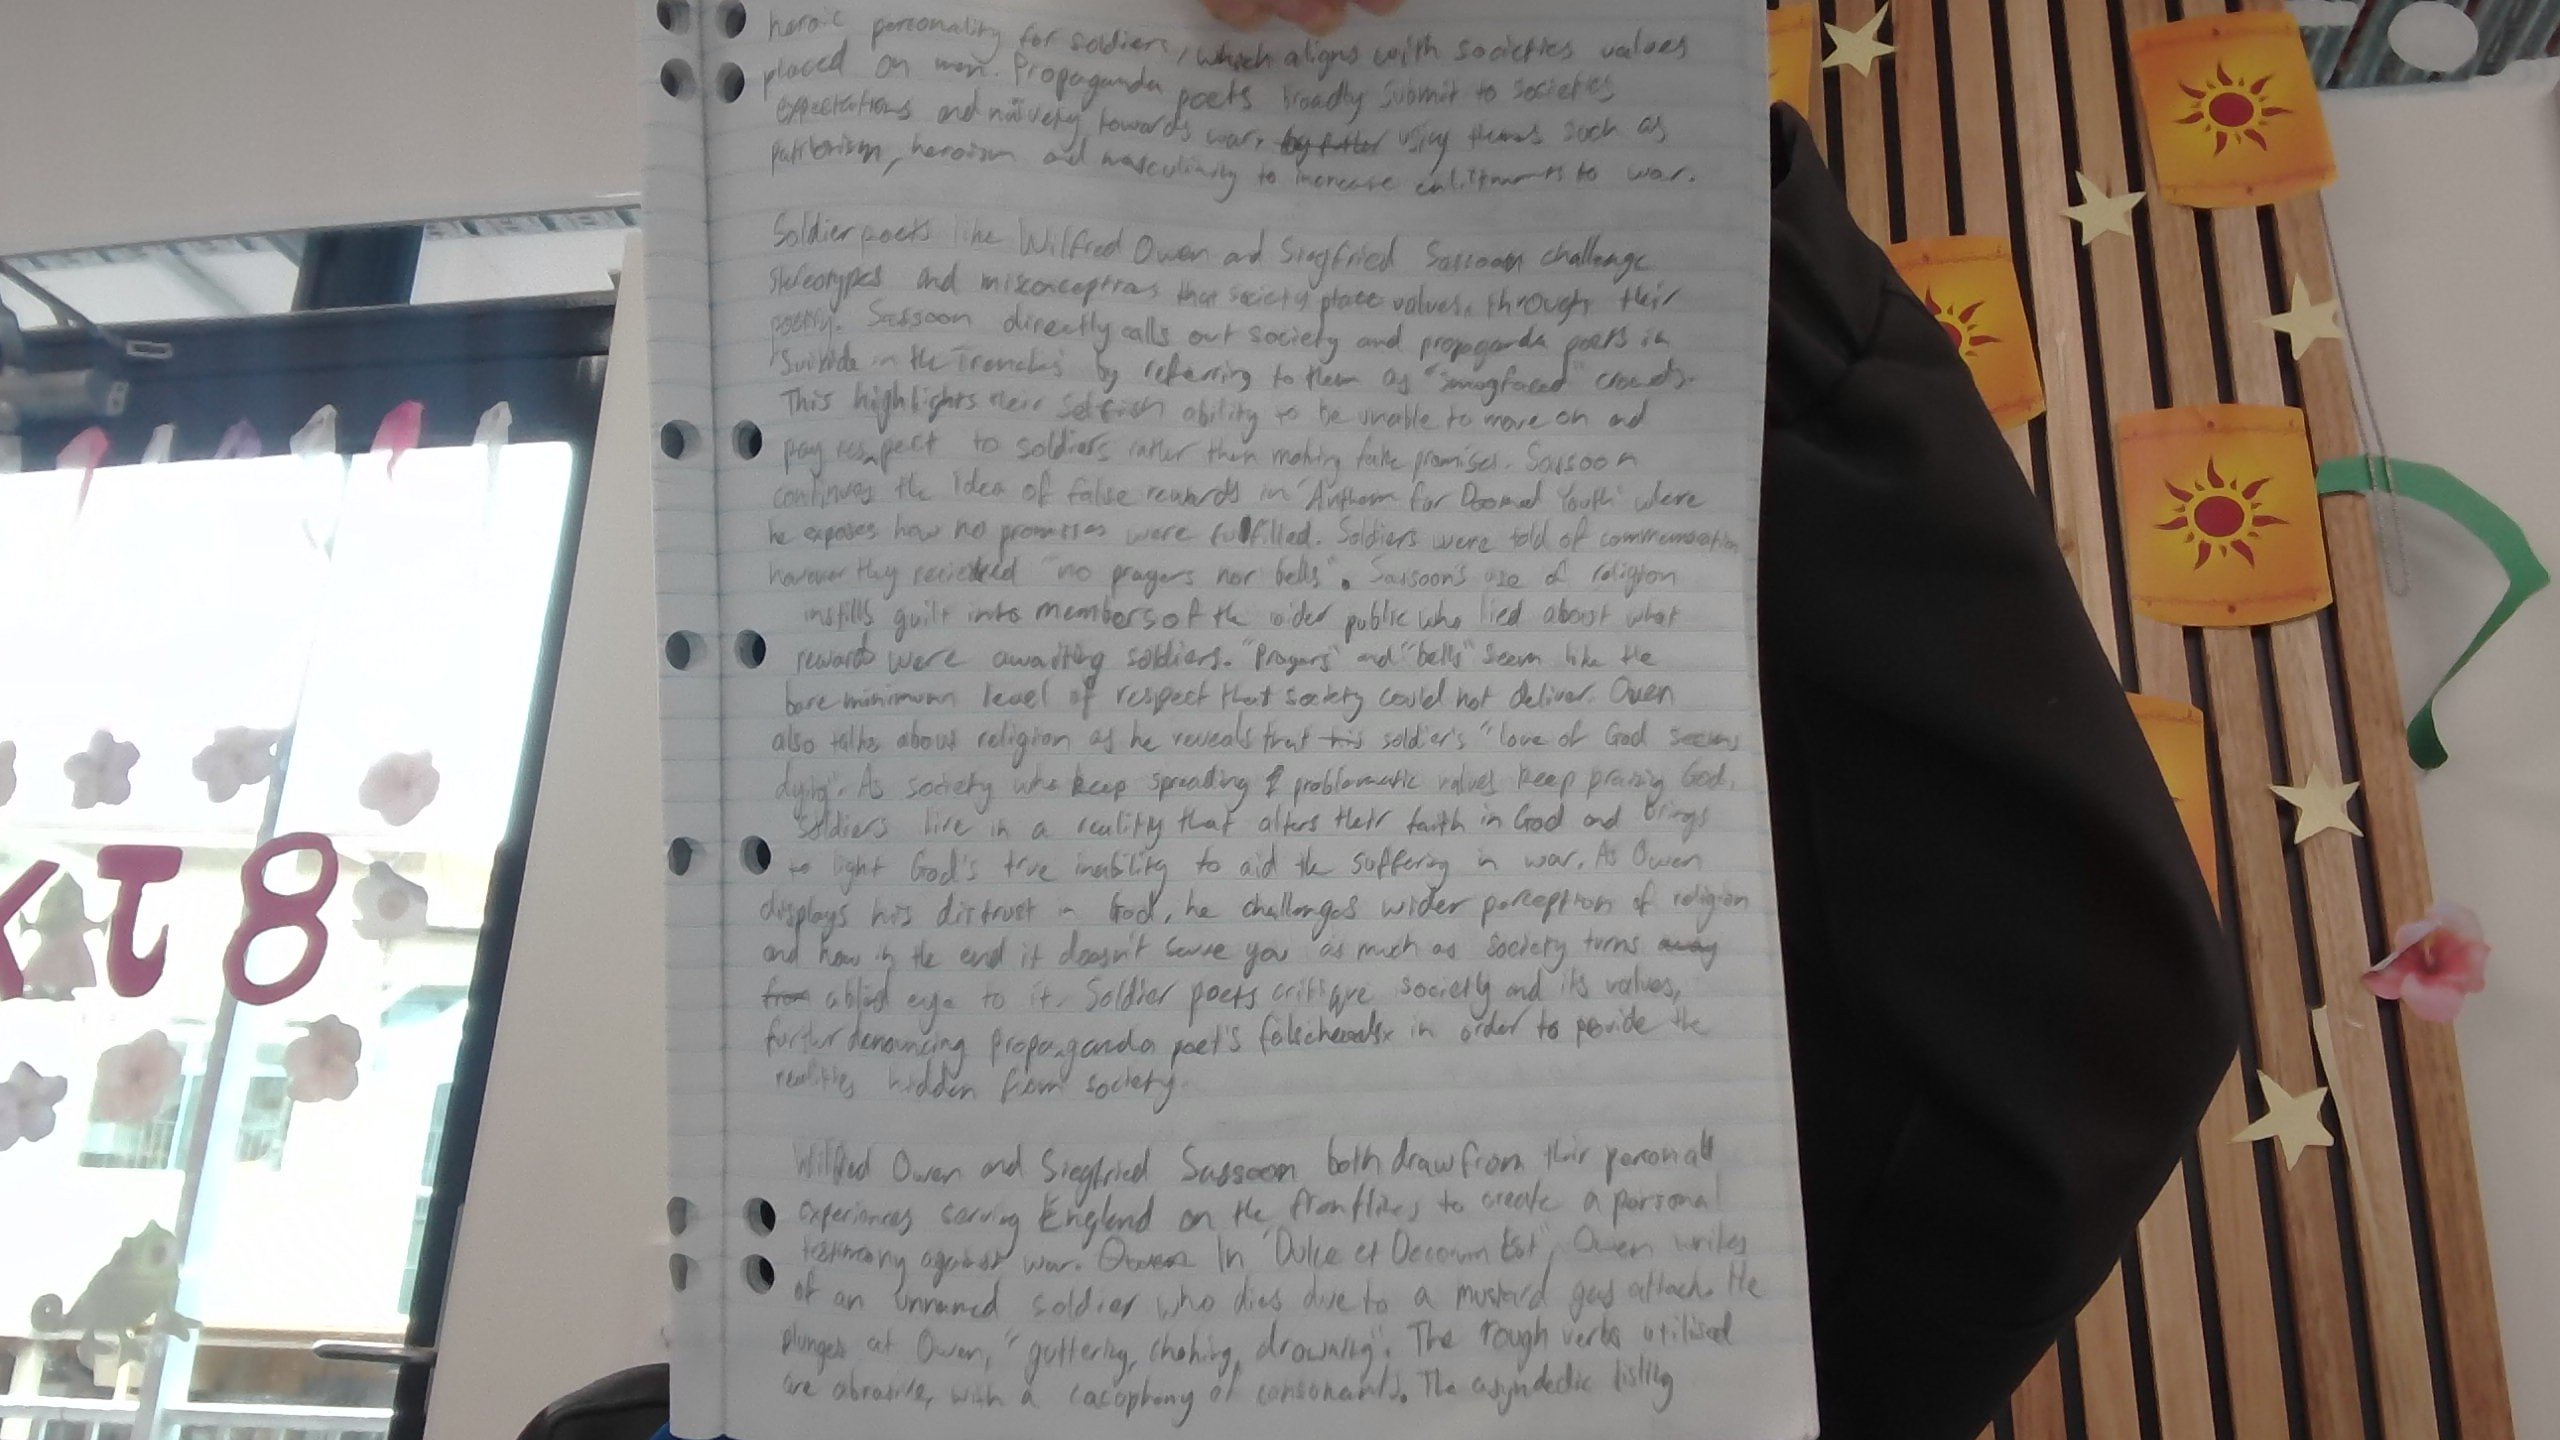 heroic personality for soldiers, which aligns with societies values
placed on men. Propaganda poets broadly submit to societies
expectations and naïvety towards war, by futher using themes such as
patriotism, heroism and masculinity to increase enlistments to war.
Soldier poets like Wilfred Owen and Siegfried Sassoon challenge
stereotypes and misconceptions that society place values, through their
poetry. Sassoon directly calls out society and propaganda poets in
'Suicide in the Trenches' by referring to them as "smugfaced" crowds.
This highlights their selfish ability to be unable to move on and
pay respect to soldiers rather than making fake promises. Sassoon
continues the idea of false rewards in 'Anthem for Doomed Youth' where
he exposes how no promises were fulfilled. Soldiers were told of commemoration
however they recieved "no prayers nor bells". Sassoon's use of religion
instills guilt into members of the wider public who lied about what
rewards were awaiting soldiers. "Prayers" and "bells" seem like the
bare minimum level of respect that society could not deliver. Owen
also talks about religion as he reveals that this soldier's "love of God seems
dying". As society who keep spreading problematic values keep praising God,
soldiers live in a reality that alters their faith in God and brings
to light God's true inability to aid the suffering in war. As Owen
displays his distrust in God, he challenges wider perception of religion
and how in the end it doesn't save you as much as society turns away
from a blind eye to it. Soldier poets critique society and its values,
further denouncing propaganda poet's falsehoods in order to provide the
realities hidden from society.
Wilfred Owen and Siegfried Sassoon both draw from their personal
experiences serving England on the frontlines to create a personal
testimony against war. Owen In 'Dulce et Decorum Est', Owen writes
of an unnamed soldier who dies due to a mustard gas attack. He
plunges at Owen, "guttering, choking, drowning". The rough verbs utilised
are abrasive, with a cacophony of consonants. The asyndedic listing
8